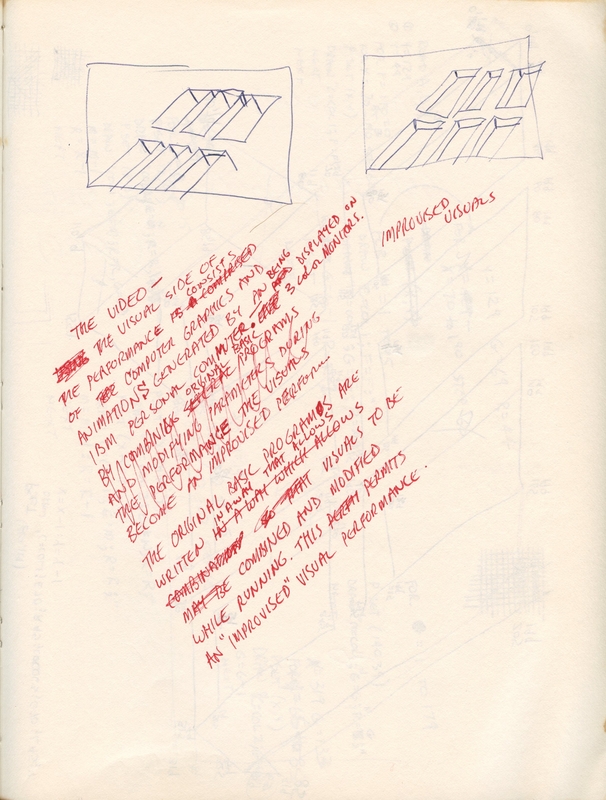 IMPROVISED
VISUALS
THE VIDEO —
THE VISUAL SIDE OF
THE PERFORMANCE IS CONSISTS
OF THE COMPUTER GRAPHICS AND
ANIMATIONS GENERATED BY AN BEING DISPLAYED ON
IBM PERSONAL COMPUTER. 3 COLOR MONITORS.
BY COMBINING ORIGINAL BASIC PROGRAMS
AND MODIFYING PARAMETERS DURING
THE PERFORMANCE THE VISUALS
BECOME AN IMPROVISED PERFORM...
THE ORIGINAL BASIC PROGRAMS ARE
WRITTEN IN A WAY THAT ALLOWS
IN A WAY WHICH ALLOWS
SO THAT VISUALS TO BE
MAY BE COMBINED AND MODIFIED
WHILE RUNNING. THIS PERMITS
AN "IMPROVISED" VISUAL PERFORMANCE.